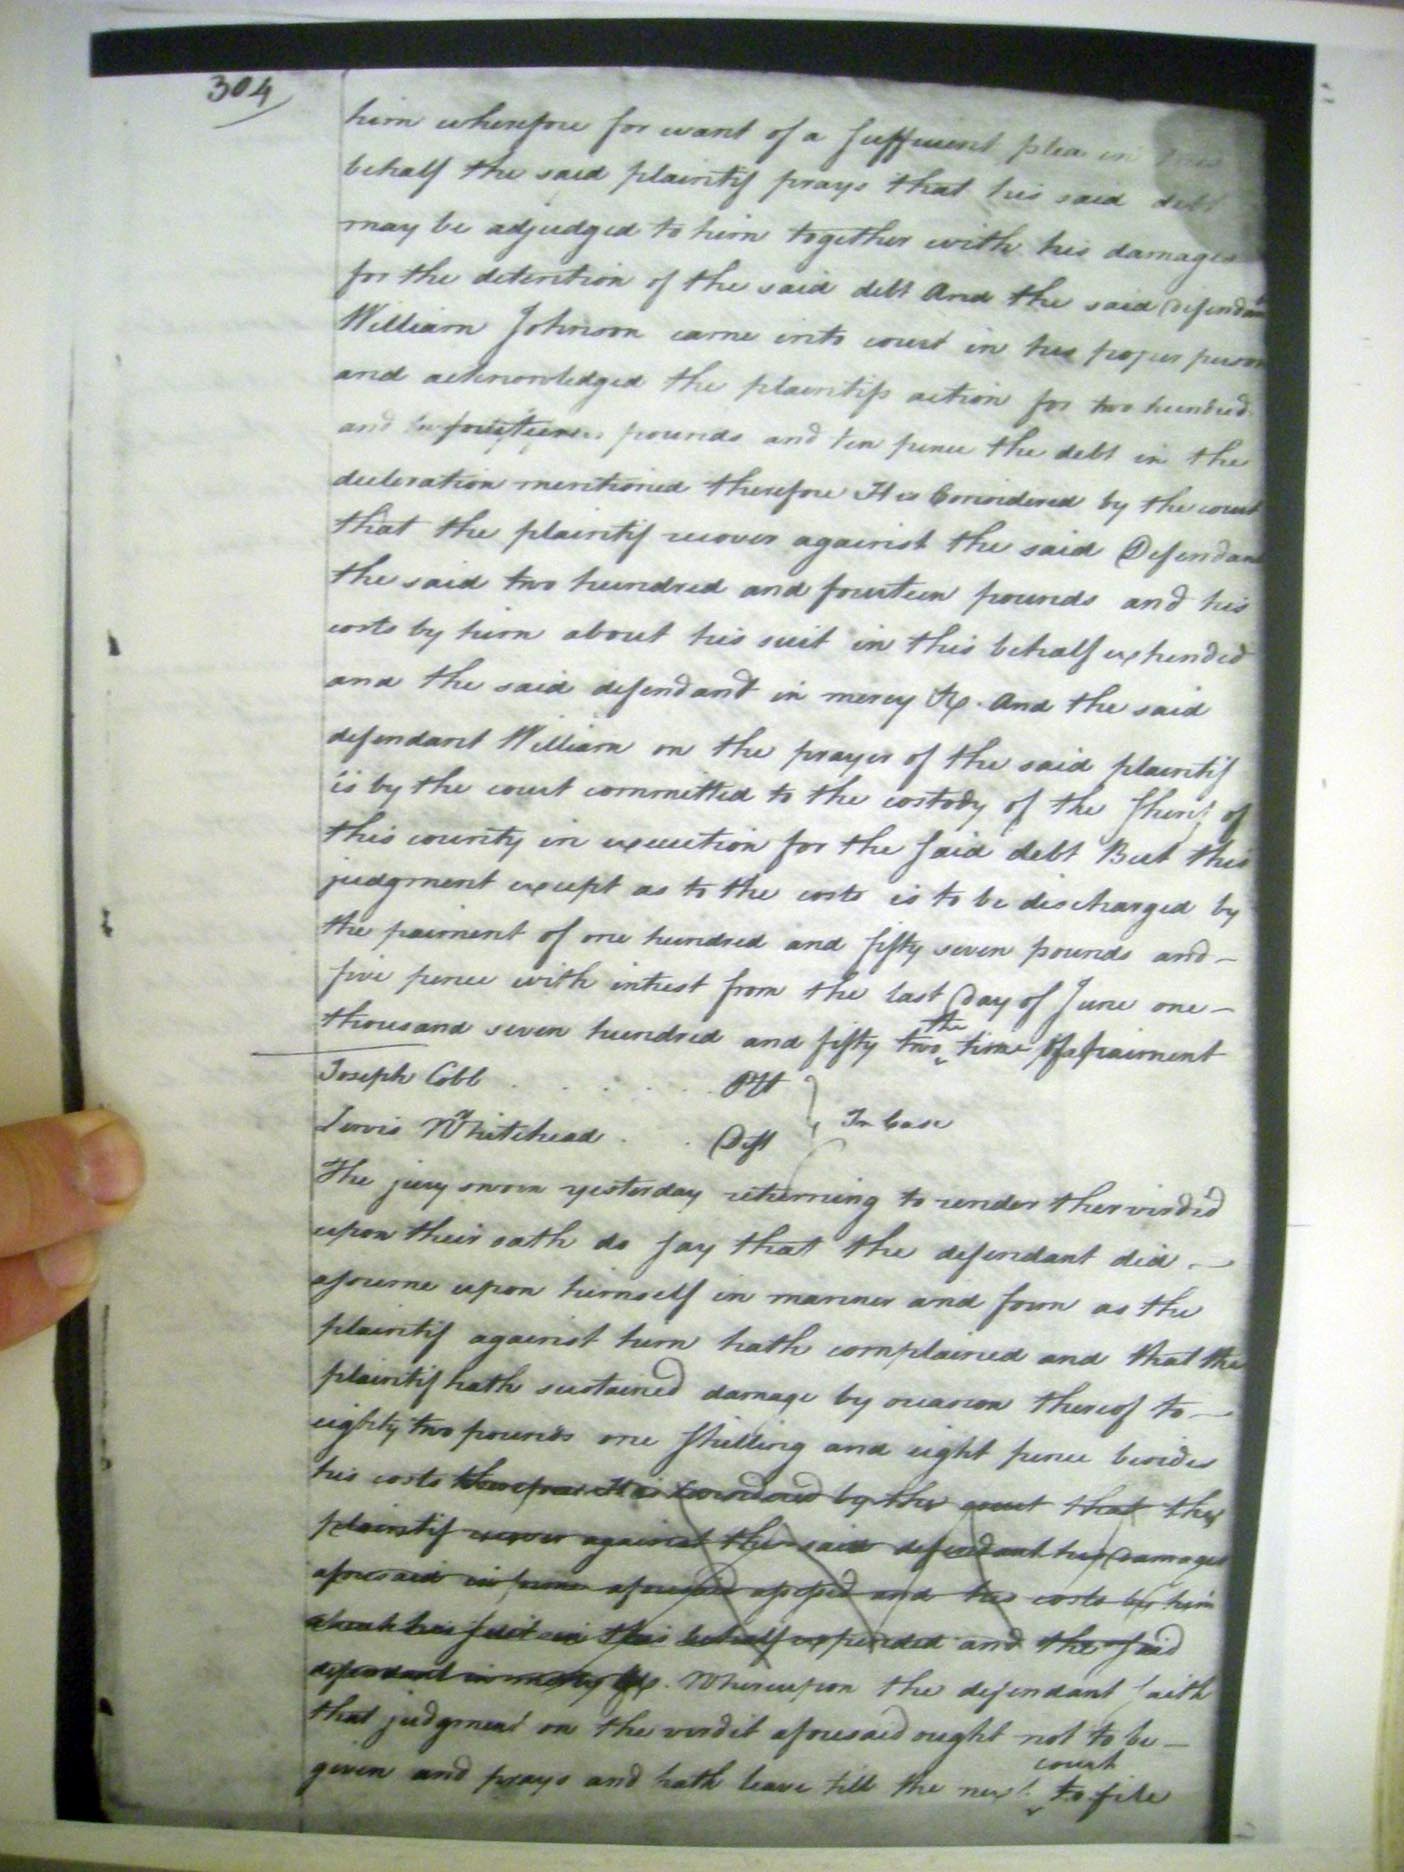 304
him wherefore for want of a sufficient plea in this
behalf the said plaintif prays that his said debt
may be adjudged to him together with his damages
for the detention of the said debt And the said Defendant
William Johnson came into court in his proper person
and acknowledged the plaintifs action for two hundred
and fourteen pounds and ten pence the debt in the
decleration mentioned therefore It is Considered by the court
that the plaintif recover against the said Defendant
the said two hundred and fourteen pounds and his
costs by him about his suit in this behalf expended
and the said defendant in mercy &c. And the said
defendant William on the prayer of the said plaintif
is by the court committed to the custody of the Sherif of
this county in execution for the said debt But this
judgment except as to the costs is to be discharged by
the paiment of one hundred and fifty seven pounds and
five pence with intrest from the last day of June one
thousand seven hundred and fifty two the time of paiment
Joseph Cobb . . . . . Plt
In Case
Whitehead . . Deft
The jury sworn yesterday returning to render ther virdid
upon their oath do say that the defendant did
asume upon himself in manner and form as the
plaintif against him hath complained and that the
plaintif hath sustained damage by occasion thereof to
eighty two pounds one shilling and eight pence besides
his costs therefore It is Considered by the court that the
plaintif recover against the said defendant his damages
aforesaid in form aforesaid assessed and his costs by him
about his suit in this behalf expended and the said
defendant in mercy &c. Whereupon the defendant saith
that judgment on the virdit aforesaid ought not to be
given and prays and hath leave till the next court to file